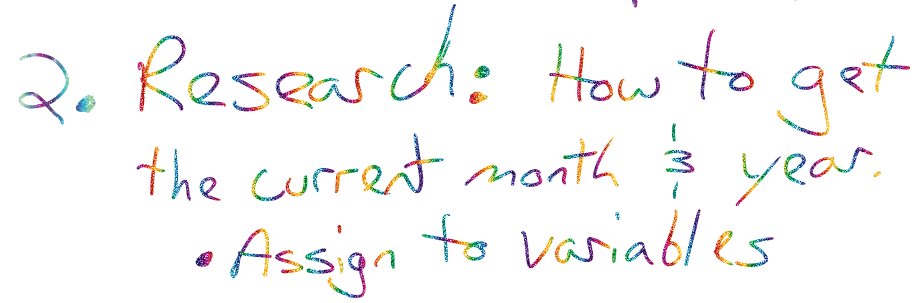 2. Research: How to get
the current month & year.
• Assign to variables